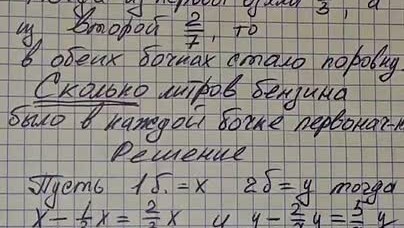 из первой взяли 3, а
из второй 2/7, то
в обеих бочках стало поровну.
Сколько литров бензина
было в каждой бочке первонач-
Решение
Пусть 1б.=x 2б=y тогда
x-1/3x=2/3x и y-2/7y=5/7y